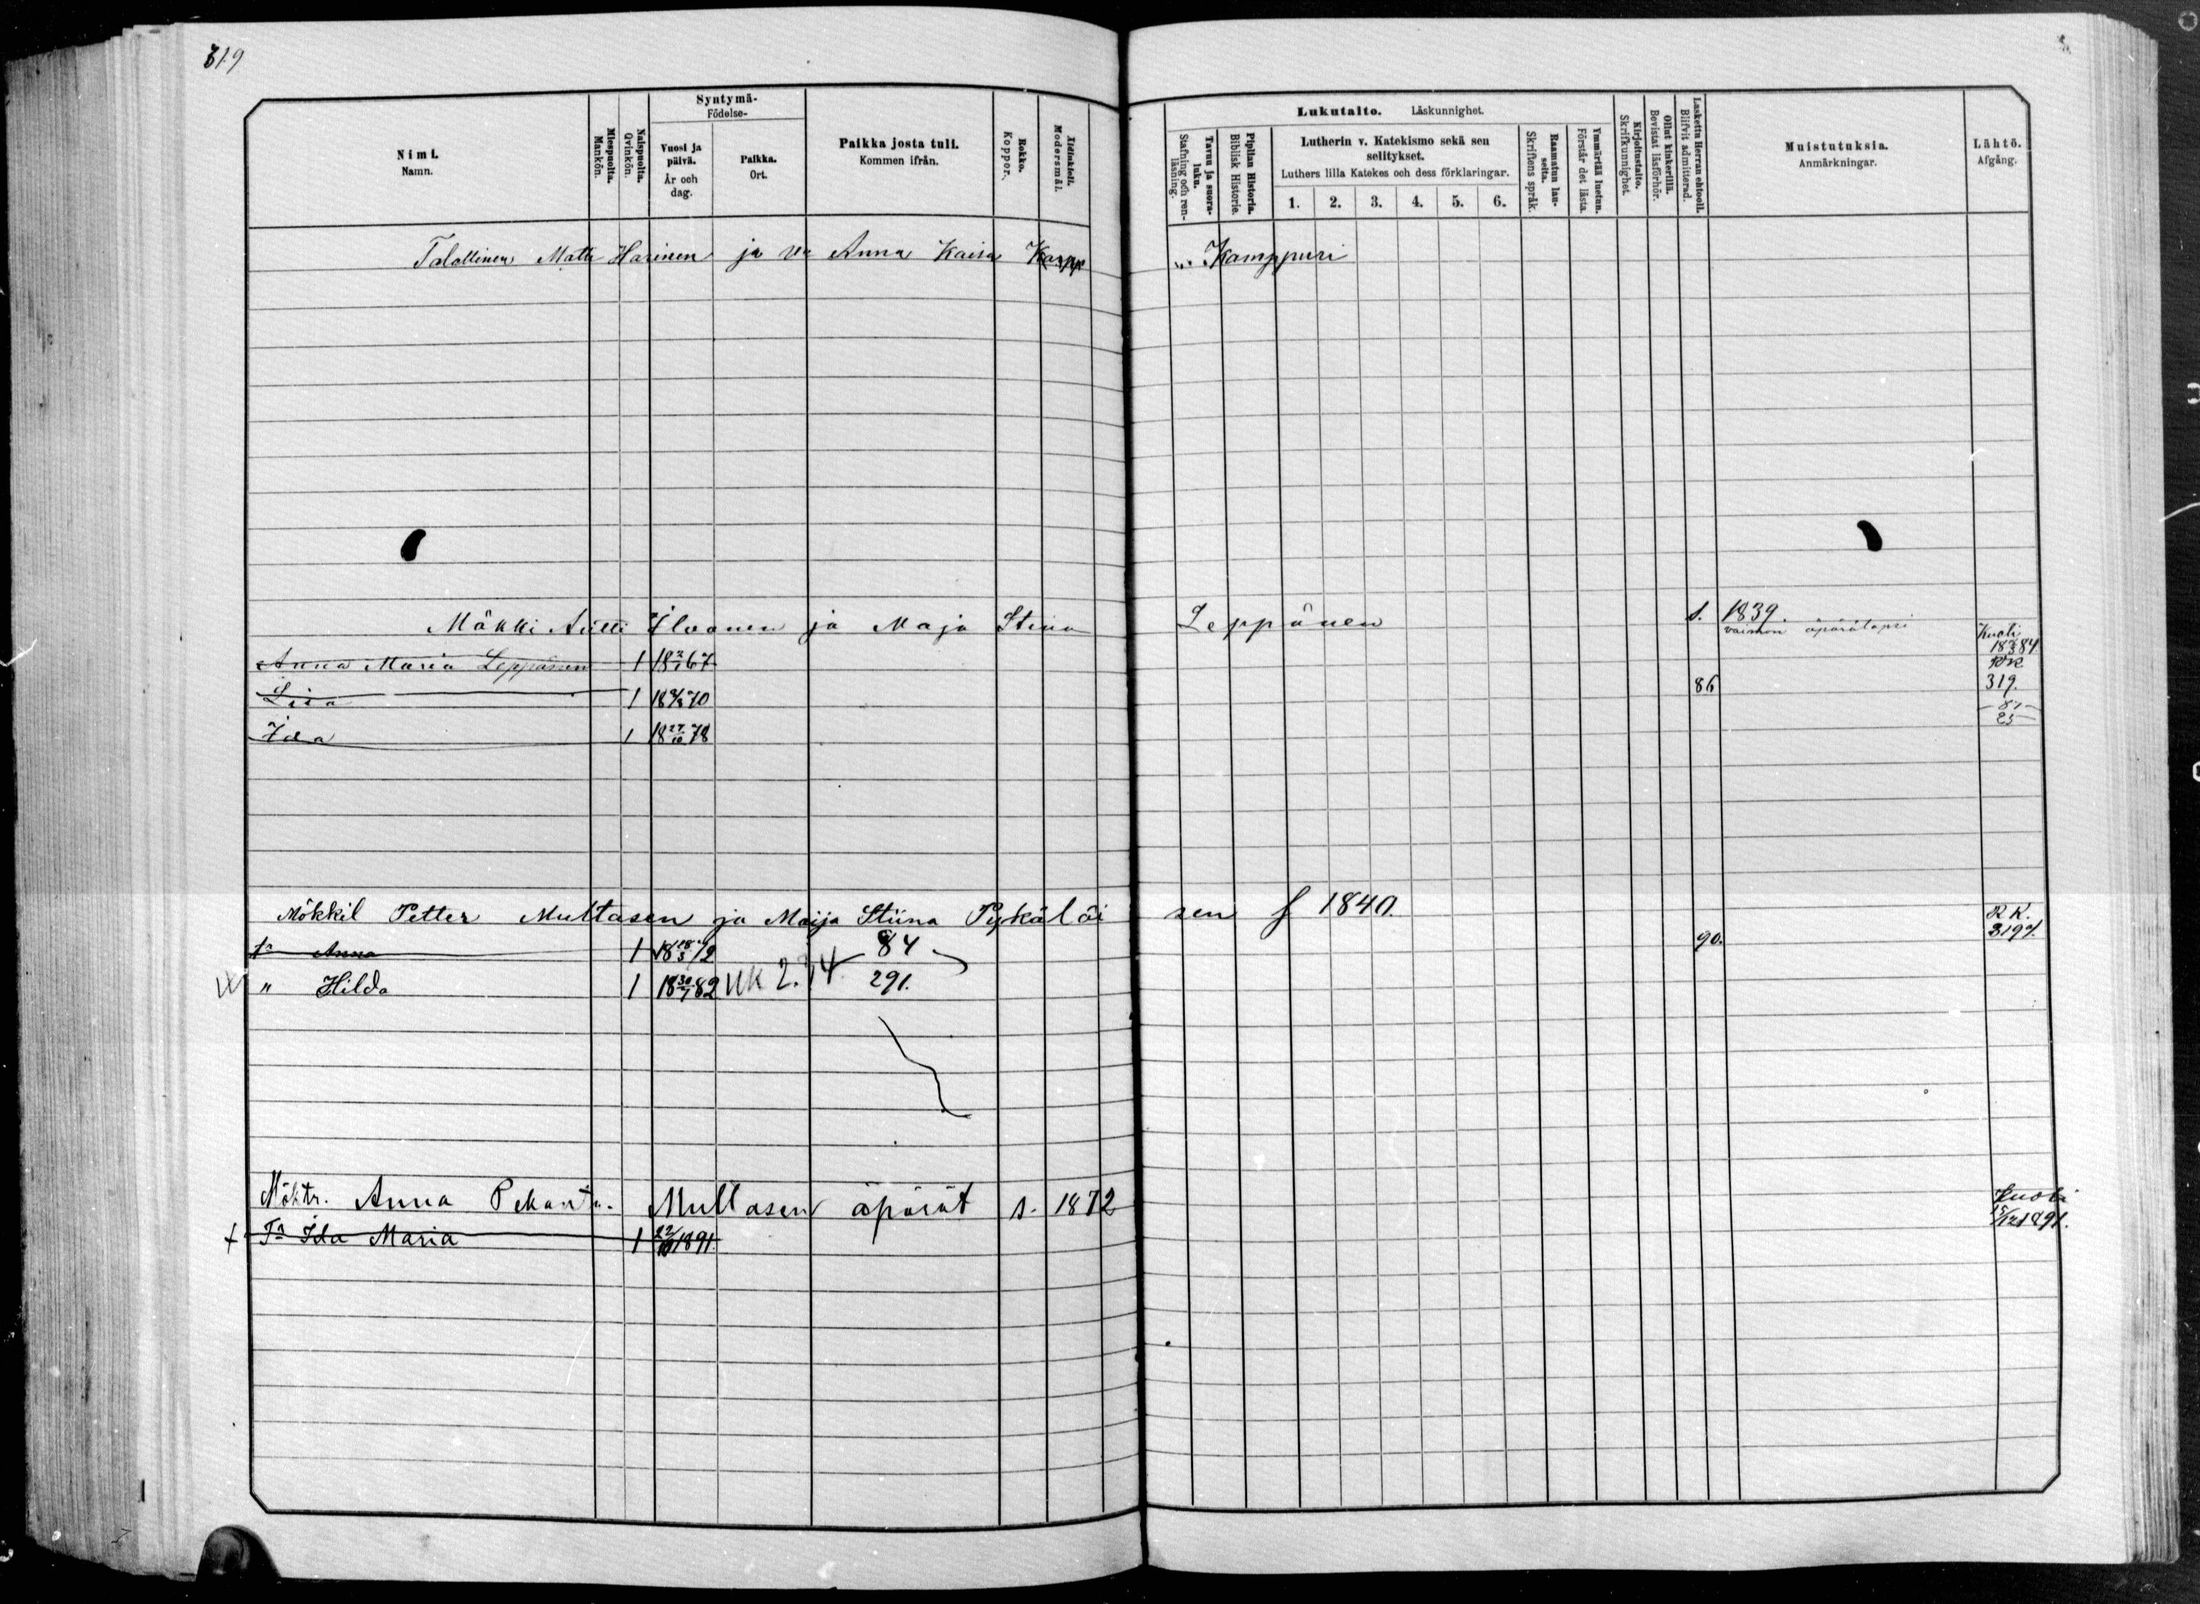 319
Syntymä-
Födelse-
Nimi.
Namn.
Miespuolta.
Mankön.
Naispuolta.
Qvinkön.
Vuosi ja
päivä.
År och
dag.
Paikka.
Ort.
Paikka josta tuli.
Kommen ifrån.
Rokko.
Koppor.
Äidinkieli.
Modersmål.
Lukutaito. Läskunnighet.
Tavuu ja suora-
luku.
Stafning och ren-
läsning.
Piplian Historia.
Biblisk Historie.
Lutherin v. Katekismo sekä sen
selitykset.
Luthers lilla Katekes och dess förklaringar.
1. 2. 3. 4. 5. 6.
Raamatun lau-
seita.
Skriftens språk.
Ymmärtää luetun.
Förstår det lästa.
Kirjoitustaito.
Skrifkunnighet.
Ollut kinkerillä.
Bevistat läsförhör.
Laskettu Herran ehtooll.
Blifvit admitterad.
Muistutuksia.
Anmärkningar.
Lähtö.
Afgång.
Talollinen Matti Harinen ja va Anna Kaisa Kampp
Kamppuri
Mäkki Antti Ilvonen ja Maja Stina Leppänen s. 1839.
vaimon äpärälapsi
Anna Maria Leppänen 1 18 2/1 67 Kuoli
18 /3 84
Lisa 1 18 /3 70 86 RK
319.
Ida 1 18 27/10 78 87
25
Mökkil Petter Multasen ja Maija Stiina Pykäläi sen f 1840.
tr Anna 1 18 28/5 72 84 90. RK.
319
" Hilda 1 18 30/7 82 UK 2.14. 291.
Möktr. Anna Pekant. Multasen äpärät s. 1872
Tr Ida Maria 1 22/10 1891 Kuoli
15/12 1891.